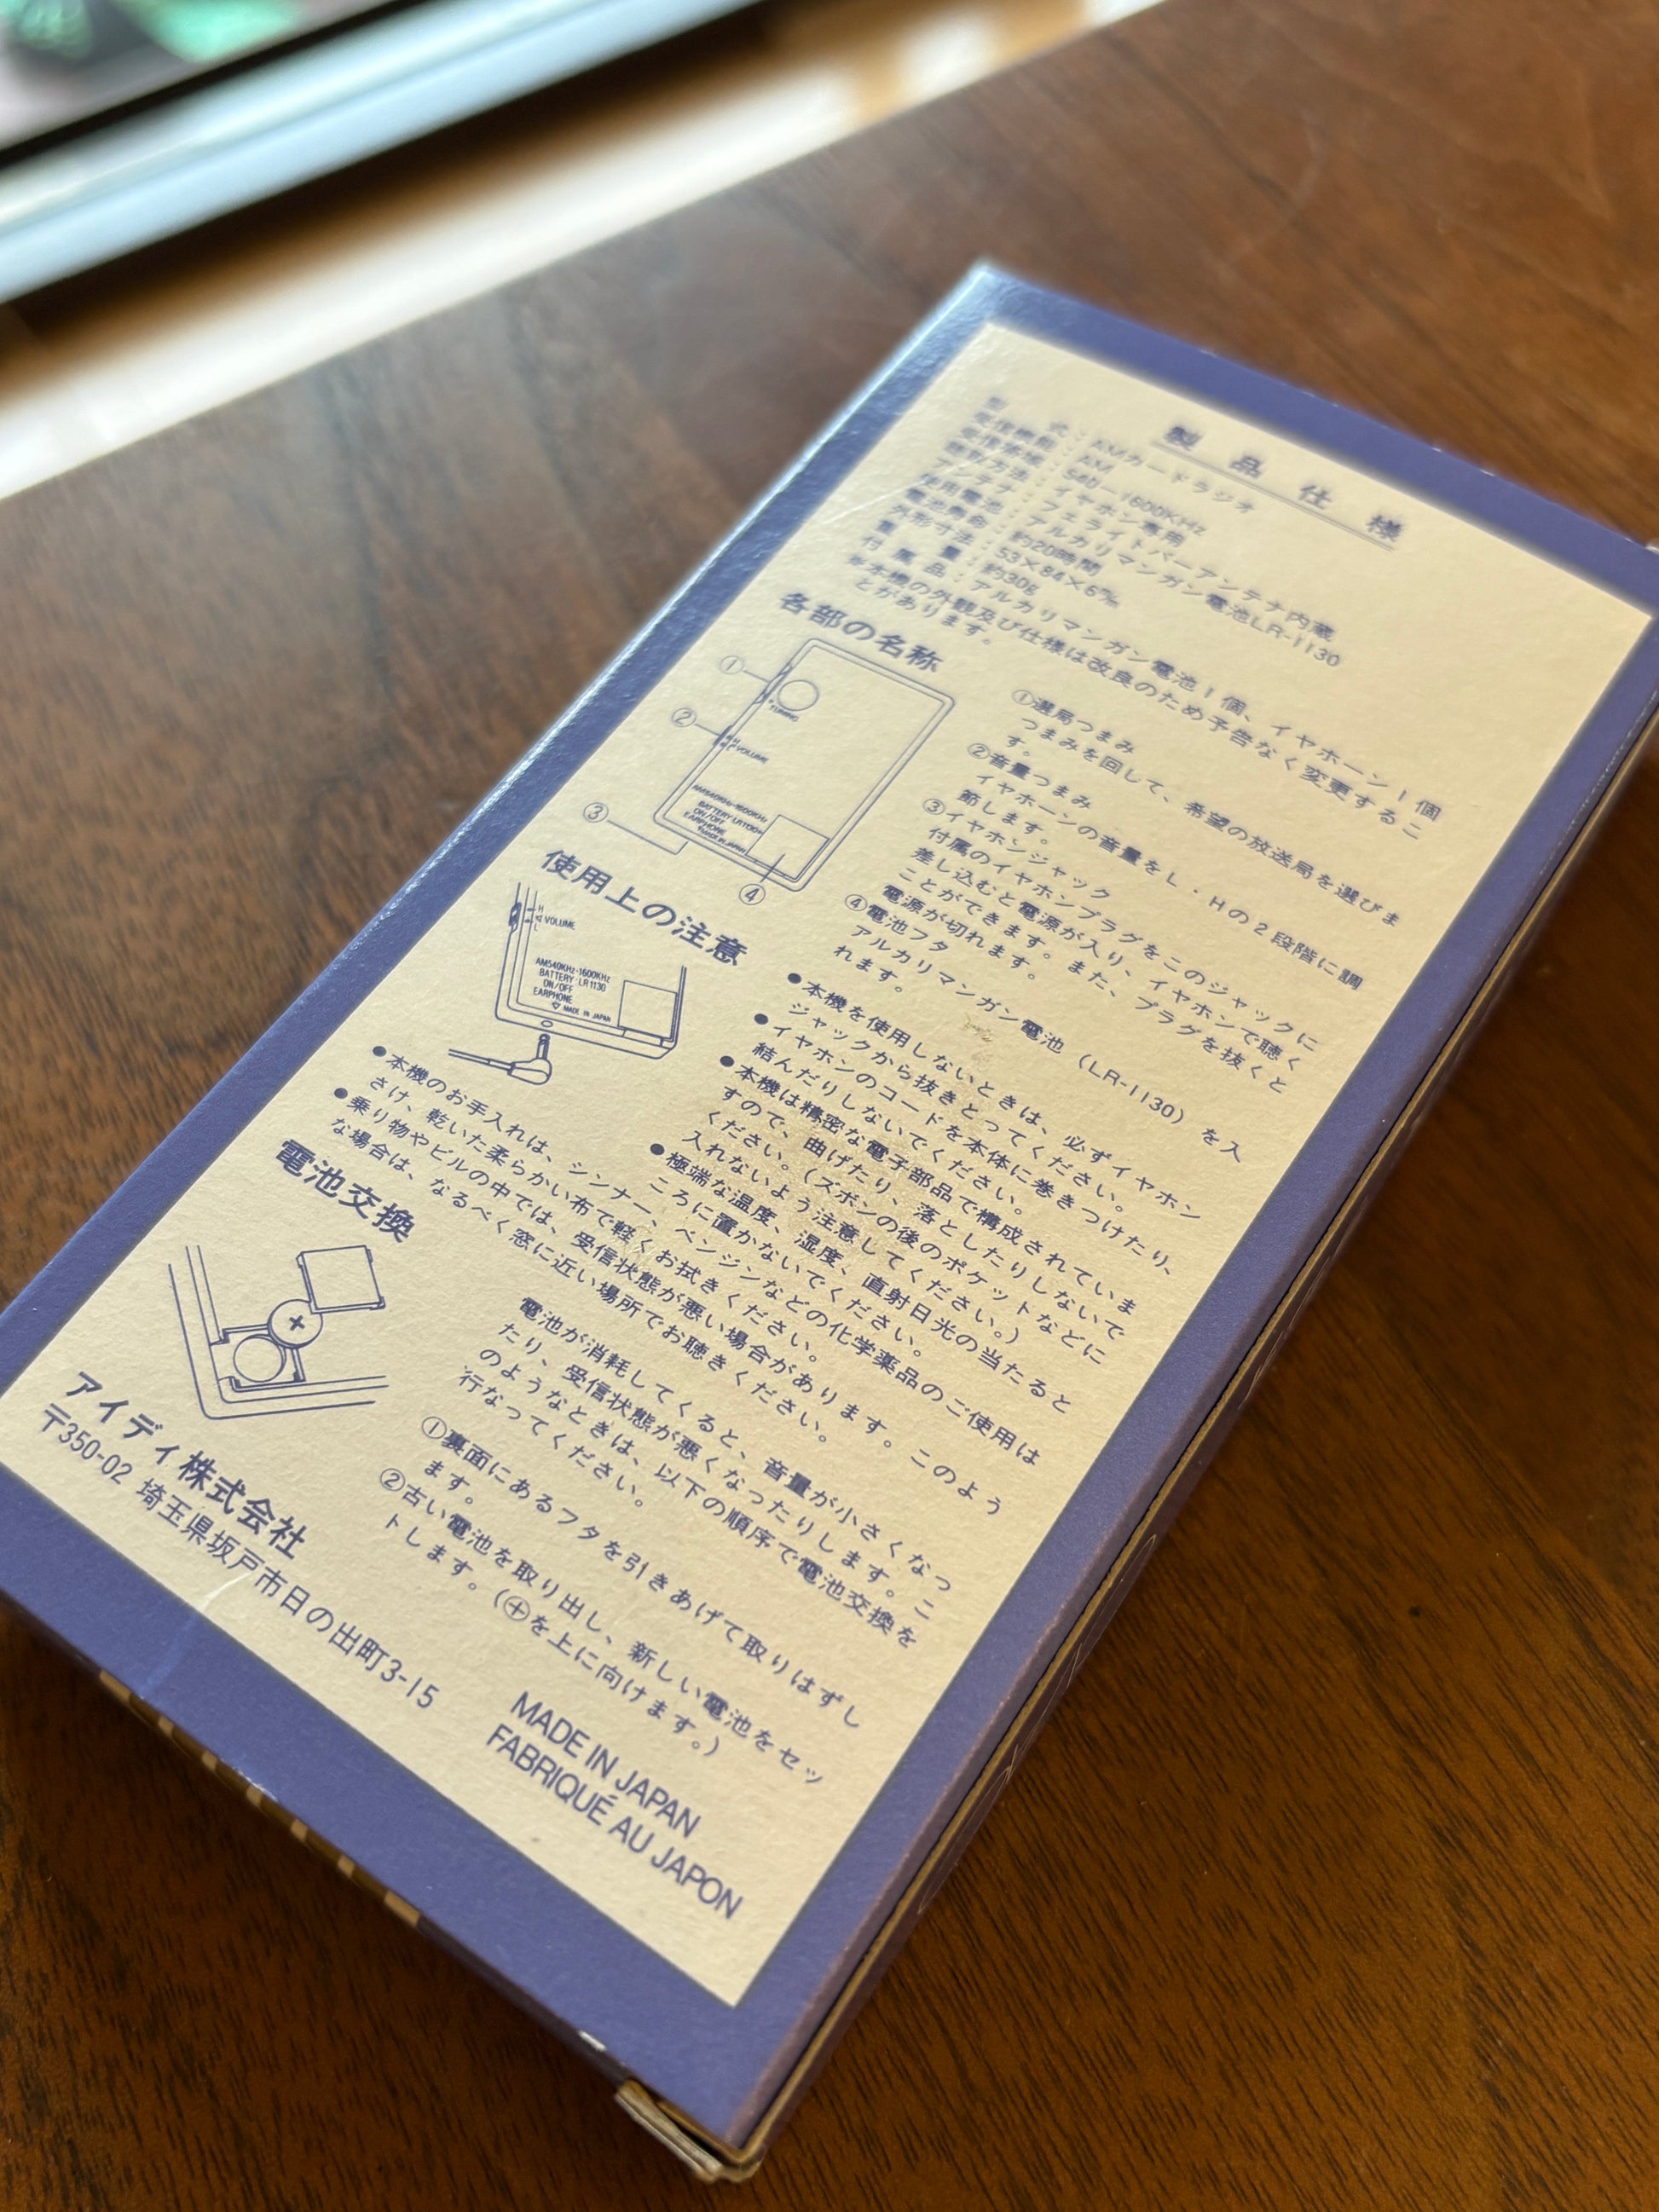 製品仕様
型式：AMカードラジオ
受信機能：AM
受信帯域：540−1600KHz
聴取方法：イヤホン専用
アンテナ：フェライトバーアンテナ内蔵
使用電池：アルカリマンガン電池LR-1130
電池寿命：約20時間
外形寸法：53×84×6㎜
重量：約30g
付属品：アルカリマンガン電池1個、イヤホーン1個
※本機の外観及び仕様は改良のため予告なく変更するこ
とがあります。
各部の名称
①
②
③
④
TUNING
H
L
VOLUME
AM540KHz・1600KHz
BATTERY
ON/OFF
EARPHONE
MADE IN JAPAN
①選局つまみ
つまみを回して、希望の放送局を選びま
す。
②音量つまみ
イヤホーンの音量をL・Hの2段階に調
節します。
③イヤホンジャック
付属のイヤホンプラグをこのジャックに
差し込むと電源が入り、イヤホンで聴く
ことができます。また、プラグを抜くと
電源が切れます。
④電池フタ
アルカリマンガン電池（LR-1130）を入
れます。
使用上の注意
H
L
VOLUME
AM540KHz・1600KHz
BATTERY：LR1130
ON/OFF
EARPHONE
MADE IN JAPAN
●本機を使用しないときは、必ずイヤホン
ジャックから抜きとってください。
●イヤホンのコードを本体に巻きつけたり、
結んだりしないでください。
●本機は精密な電子部品で構成されていま
すので、曲げたり、落としたりしないで
ください。（ズボンの後のポケットなどに
入れないよう注意してください。）
●極端な温度、湿度、直射日光の当たると
ころに置かないでください。
●本機のお手入れは、シンナー、ベンジンなどの化学薬品のご使用は
さけ、乾いた柔らかい布で軽くお拭きください。
●乗り物やビルの中では、受信状態が悪い場合があります。このよう
な場合は、なるべく窓に近い場所でお聴きください。
電池交換
+
電池が消耗してくると、音量が小さくなっ
たり、受信状態が悪くなったりします。こ
のようなときは、以下の順序で電池交換を
行なってください。
①裏面にあるフタを引きあげて取りはずし
ます。
②古い電池を取り出し、新しい電池をセッ
トします。（⊕を上に向けます。）
アイディ株式会社
〒350-02 埼玉県坂戸市日の出町3-15
MADE IN JAPAN
FABRIQUÉ AU JAPON